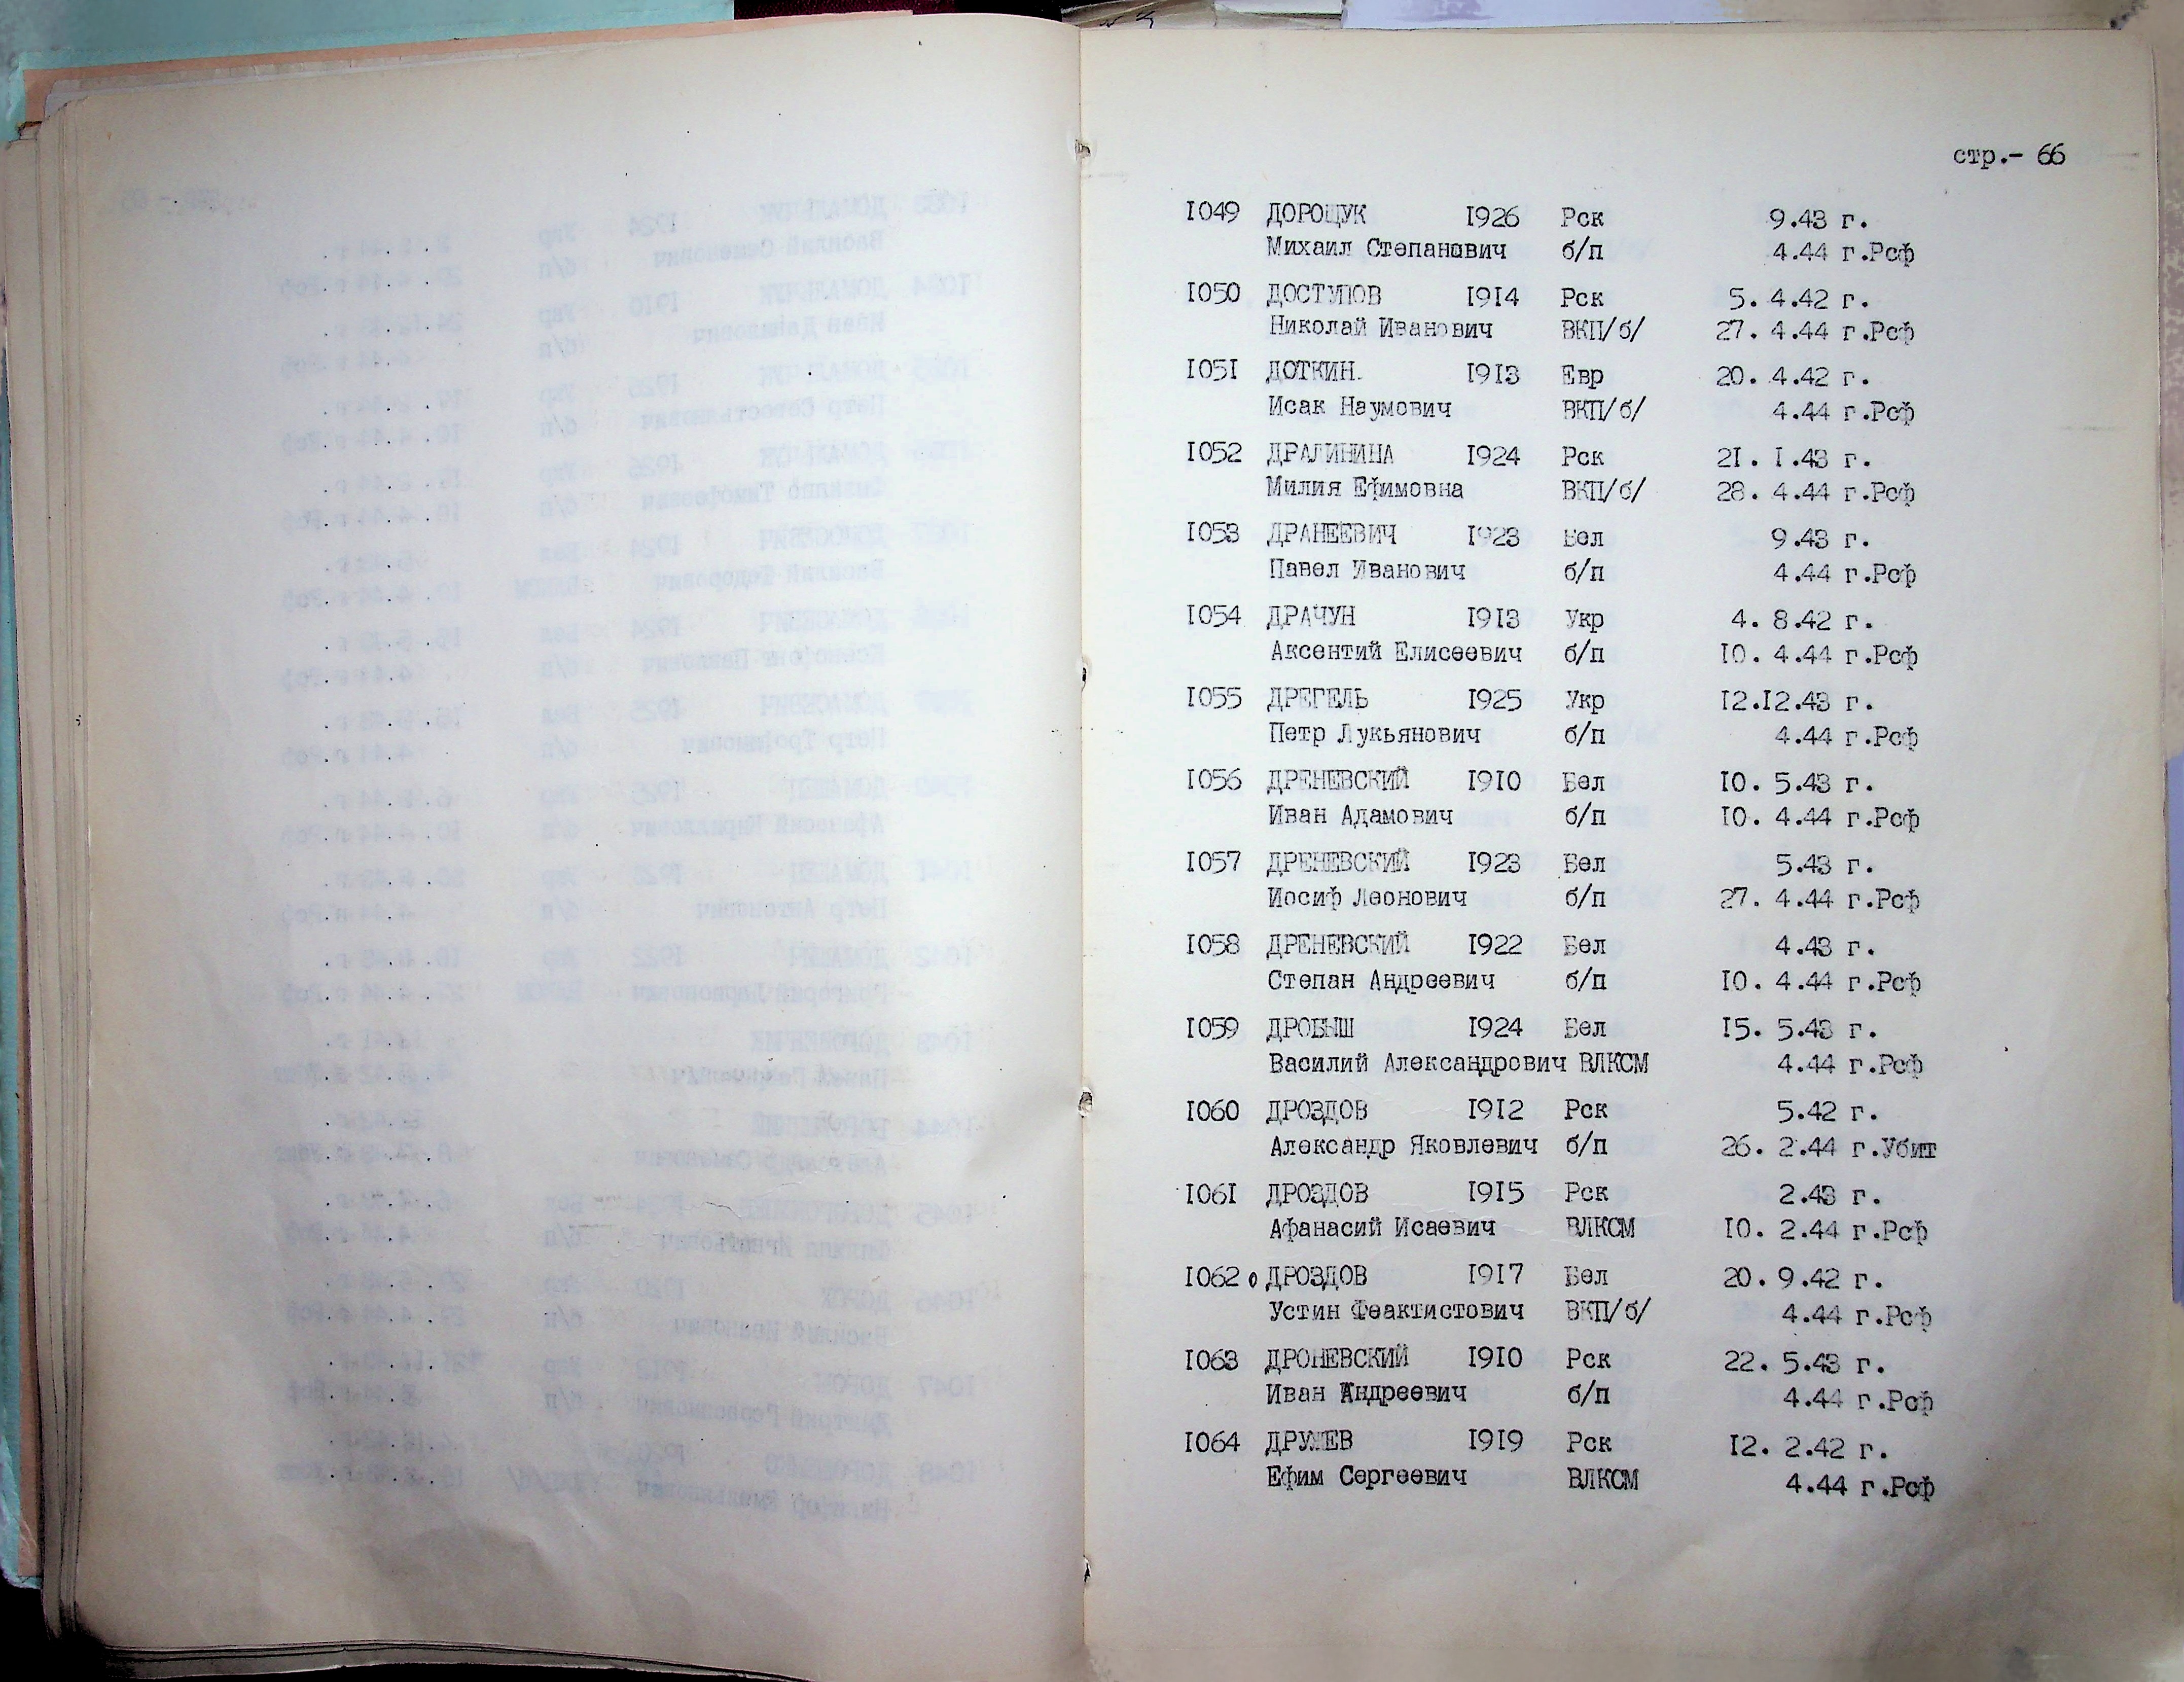 стр.- 66
1049 ДОРОЩУК 1926 Рск 9.43 г.
Михаил Степанович б/п 4.44 г.Рсф
1050 ДОСТУПОВ 1914 Рск 5. 4.42 г.
Николай Иванович ВКП/б/ 27. 4.44 г.Рсф
1051 ДОТКИН. 1913 Евр 20. 4.42 г.
Исак Наумович ВКП/б/ 4.44 г.Рсф
1052 ДРАЛИНИНА 1924 Рск 21. 1.43 г.
Милия Ефимовна ВКП/б/ 28. 4.44 г.Рсф
1053 ДРАНЕЕВИЧ 1923 Бел 9.43 г.
Павел Иванович б/п 4.44 г.Рсф
1054 ДРАЧУН 1913 Укр 4. 8.42 г.
Аксентий Елисеевич б/п 10. 4.44 г.Рсф
1055 ДРЕГЕЛЬ 1925 Укр 12.12.43 г.
Петр Лукьянович б/п 4.44 г.Рсф
1056 ДРЕНЕВСКИЙ 1910 Бел 10. 5.43 г.
Иван Адамович б/п 10. 4.44 г.Рсф
1057 ДРЕНЕВСКИЙ 1923 Бел 5.43 г.
Иосиф Леонович б/п 27. 4.44 г.Рсф
1058 ДРЕНЕВСКИЙ 1922 Бел 4.43 г.
Степан Андреевич б/п 10. 4.44 г.Рсф
1059 ДРОБЫШ 1924 Бел 15. 5.43 г.
Василий Александрович ВЛКСМ 4.44 г.Рсф
1060 ДРОЗДОВ 1912 Рск 5.42 г.
Александр Яковлевич б/п 26. 2.44 г.Убит
1061 ДРОЗДОВ 1915 Рск 2.43 г.
Афанасий Исаевич ВЛКСМ 10. 2.44 г.Рсф
1062 ДРОЗДОВ 1917 Бел 20. 9.42 г.
Устин Феактистович ВКП/б/ 4.44 г.Рсф
1063 ДРОНЕВСКИЙ 1910 Рск 22. 5.43 г.
Иван Андреевич б/п 4.44 г.Рсф
1064 ДРУЖЕВ 1919 Рск 12. 2.42 г.
Ефим Сергеевич ВЛКСМ 4.44 г.Рсф